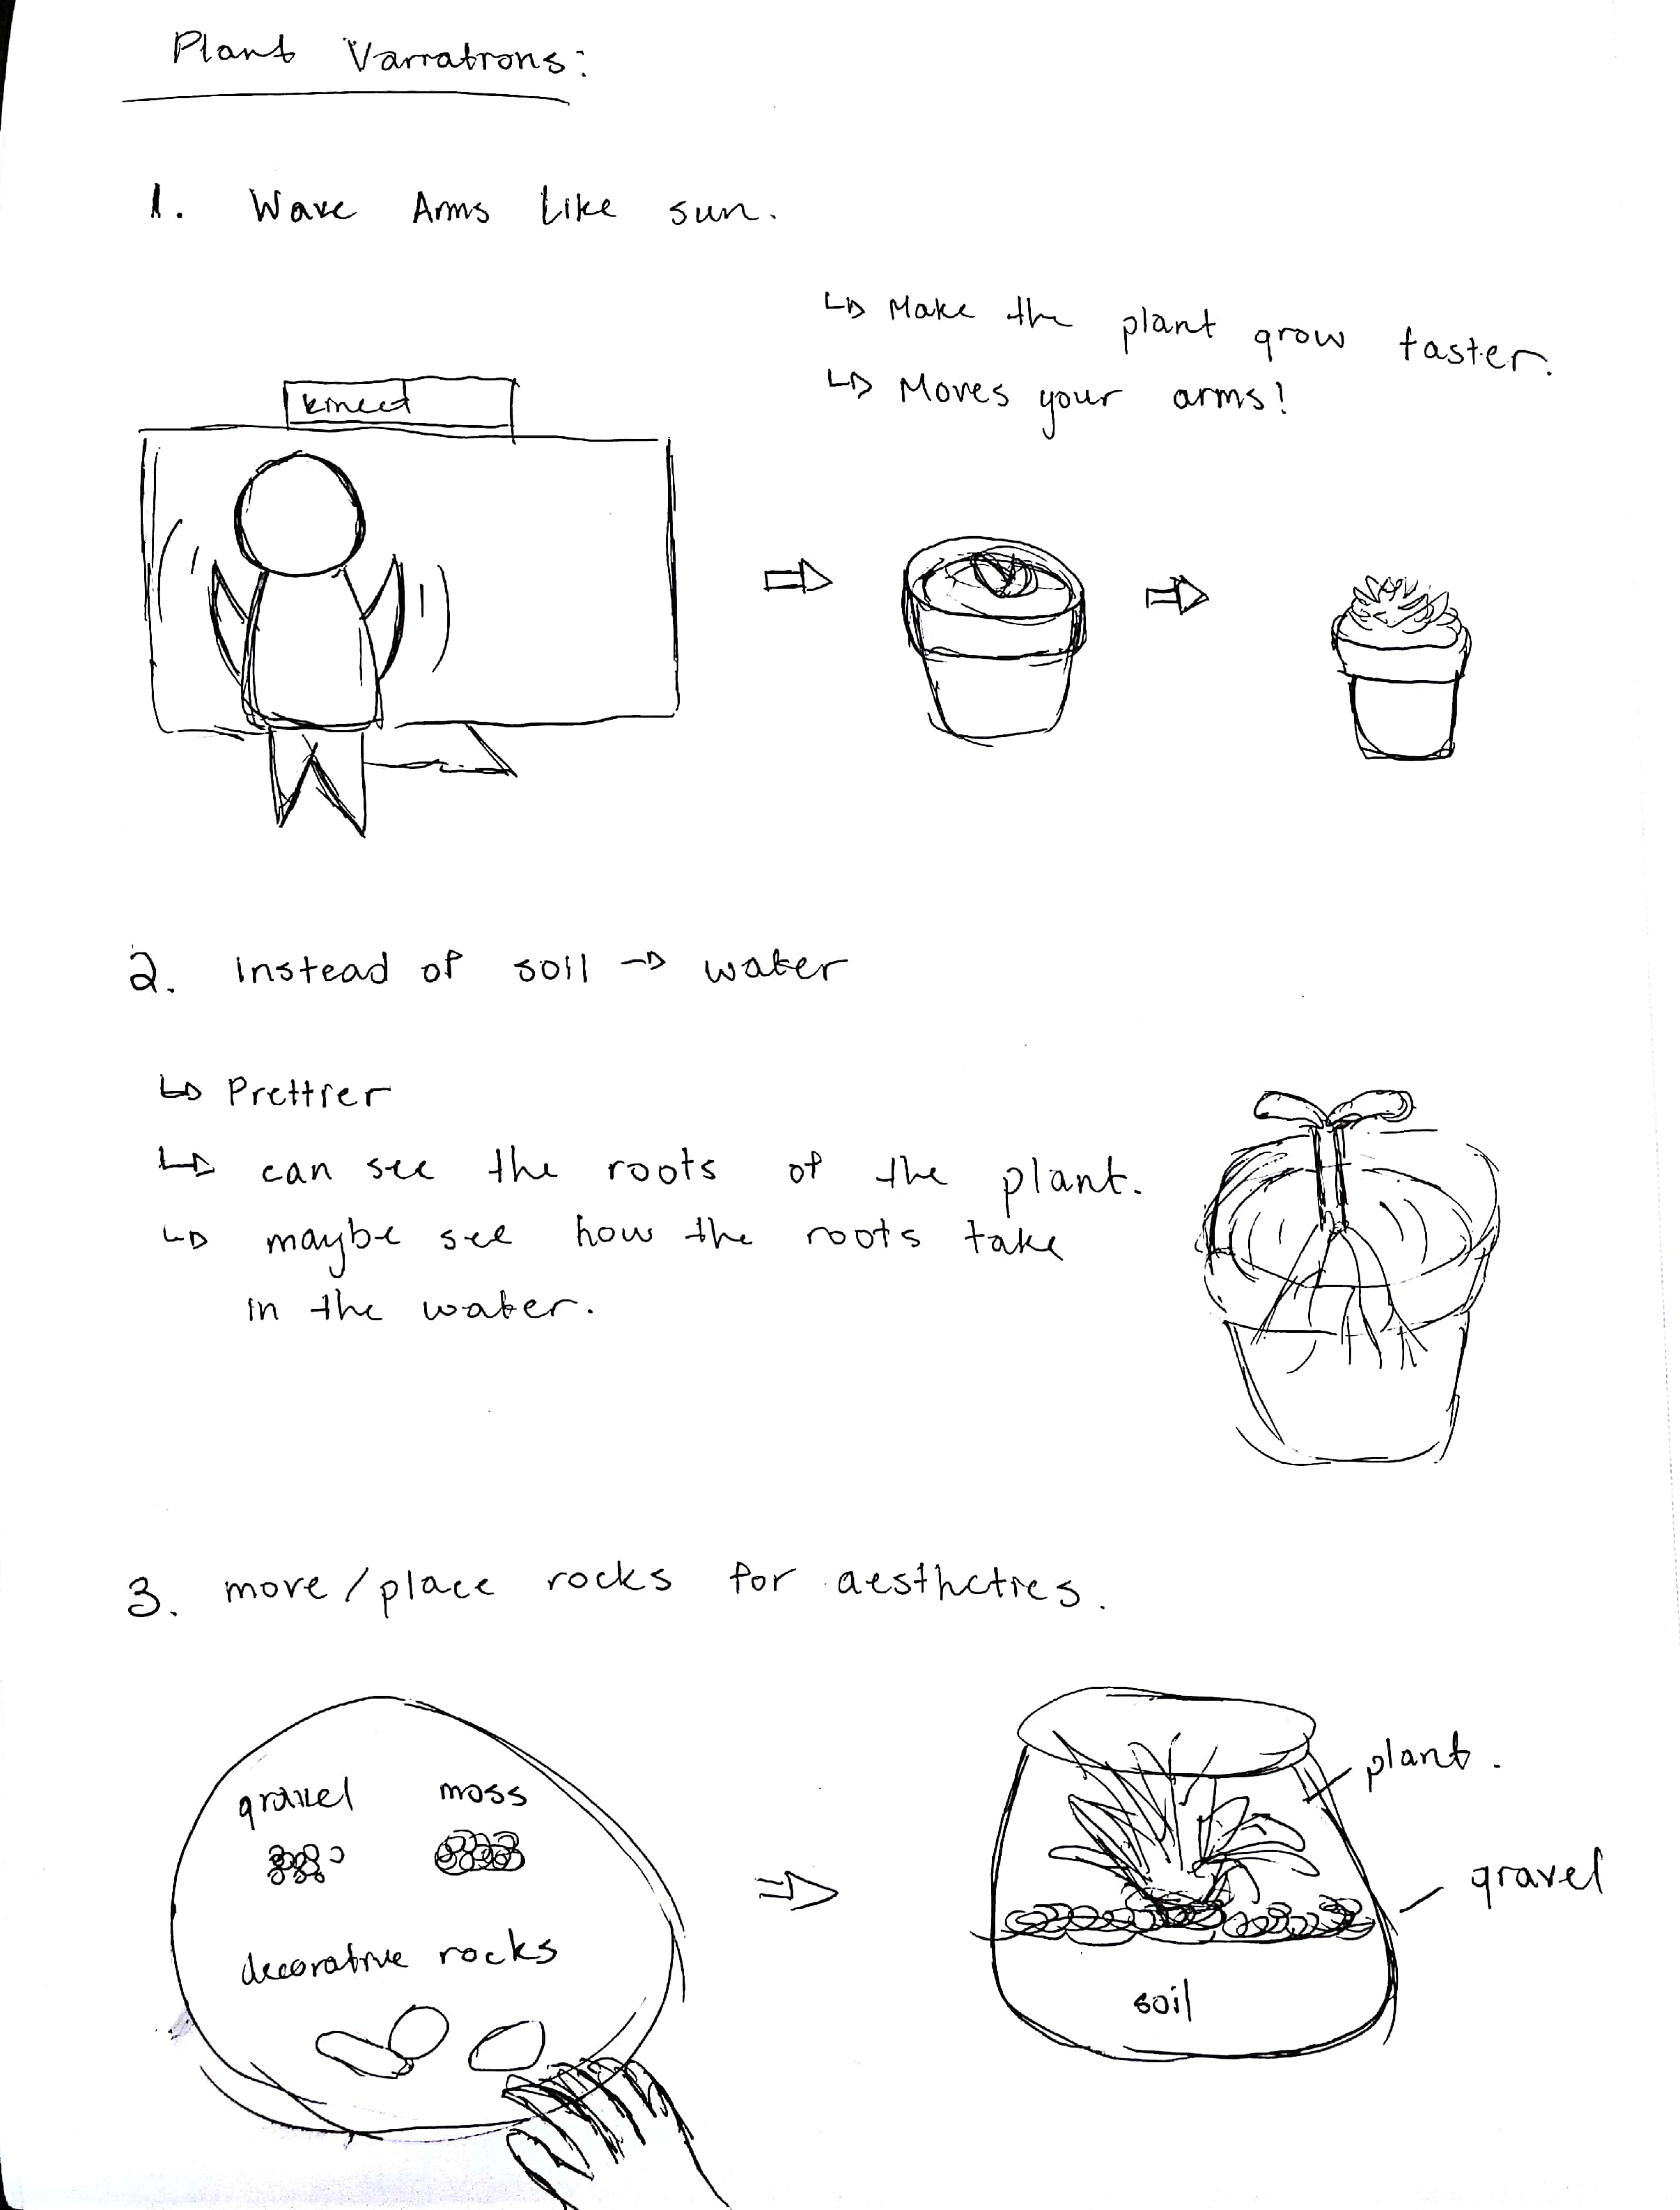 Plant Variations:
1. Wave Arms Like sun.
↳ Make the plant grow faster.
↳ Moves your arms!
kinect
2. instead of soil → water
↳ Prettier
↳ can see the roots of the plant.
↳ maybe see how the roots take
in the water.
3. move/place rocks for aesthetics.
gravel moss
decorative rocks
plant.
gravel
soil